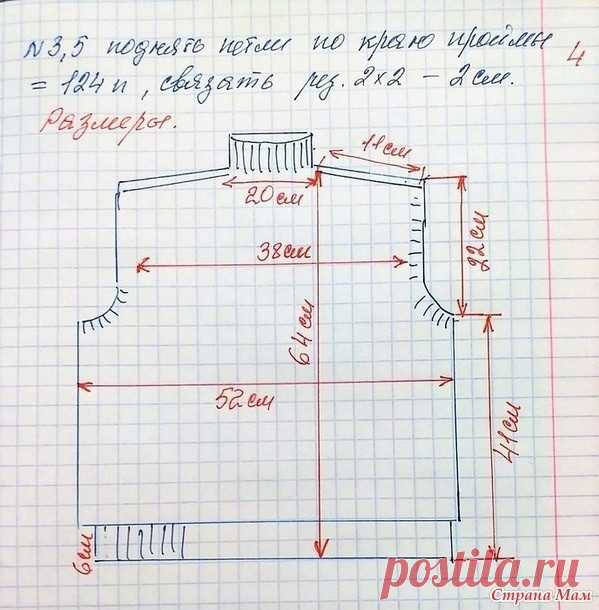 N3,5 поднять петли по краю проймы
= 124 п, связать рез. 2х2 – 2 см.
4
Размеры.
11 см
20 см
22 см
38 см
64 см
52 см
41 см
6 см
postila.ru
Страна Мам